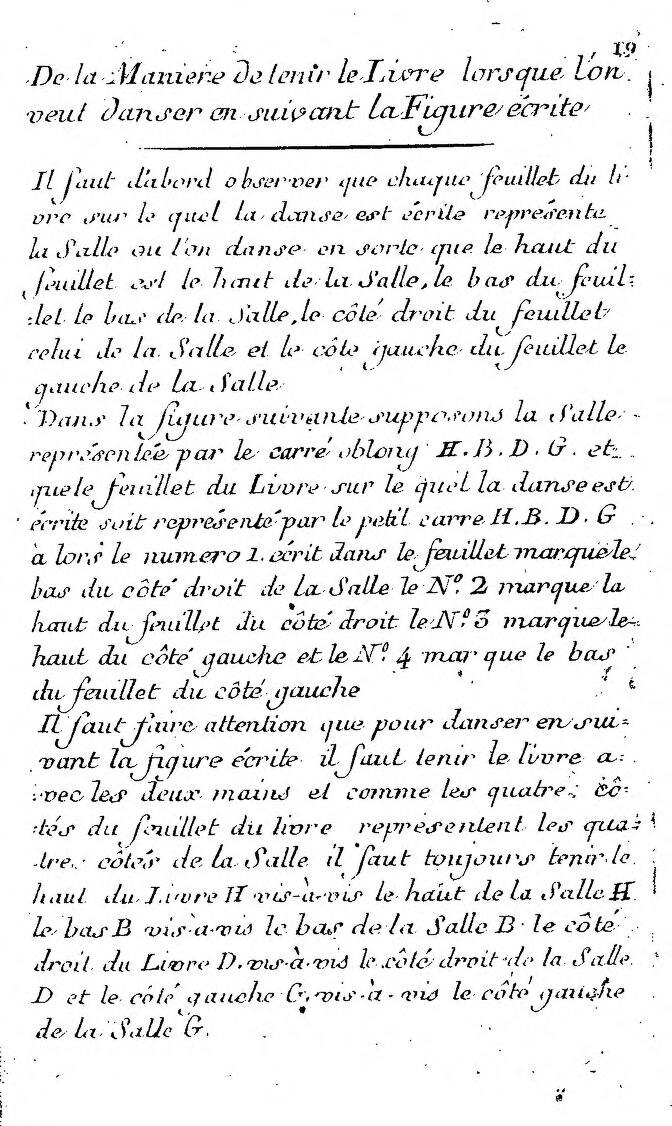 19
De la Maniere de tenir le Livre lorsque l'on
veut danser en suivant la Figure écrite
Il faut d'abord observer que chaque feuillet du li-
vre sur le quel la danse est écrite représente
la Salle ou l'on danse en sorte que le haut du
feuillet est le haut de la Salle, le bas du feuil=
=let le bas de la Salle, le côté droit du feuillet
celui de la Salle et le côte gauche du feuillet le
gauche de la Salle
Dans la figure suivante supposons la Salle
représentée par le carré oblong H. B. D. G. et
que le feuillet du Livre sur le quel la danse est
écrite soit représenté par le petit carre H. B. D. G
a lors le numero 1. écrit dans le feuillet marque le
bas du côté droit de la Salle le N.º 2 marque la
haut du feuillet du côté droit le N.º 3 marque le
haut du côté gauche et le N.º 4 mar que le bas
du feuillet du côté gauche
Il faut faire attention que pour danser en sui=
vant la figure écrite il faut tenir le livre a=
=vec les deux mains et comme les quatre cô=
=tés du feuillet du livre représentent les qua=
=tre côtés de la Salle il faut toujours tenir le
haut du Livre H vis-à-vis le haut de la Salle H
le bas B vis-à-vis le bas de la Salle B le côté
droit du Livre D. vis-à-vis le côté droit de la Salle
D et le côté gauche G. vis-à-vis le côté gauche
de la Salle G.